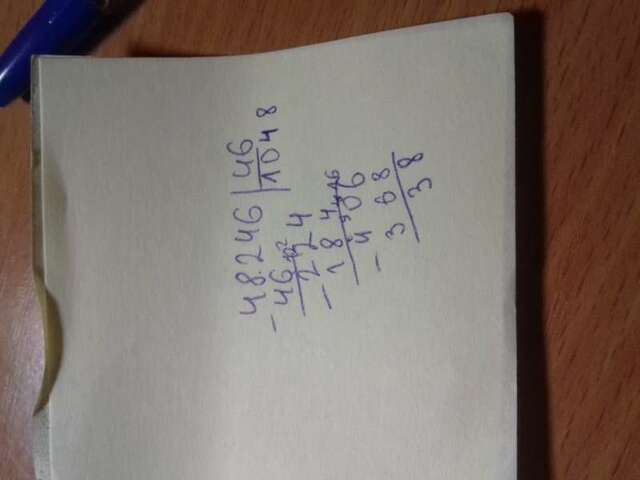 48.246 | 46
- 46 1048
224
- 184
406
- 368
38